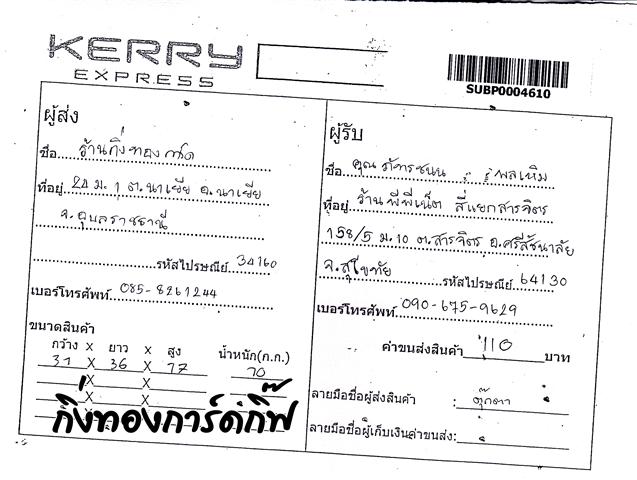 KERRY
EXPRESS
SUBP0004610
ผู้ส่ง
ชื่อ ร้านกิ่งทองการ์ด
ที่อยู่ 20 ม.1 ต.นาเยีย อ.นาเยีย
จ.อุบลราชธานี
รหัสไปรษณีย์ 34160
เบอร์โทรศัพท์ 085-8261244
ขนาดสินค้า
กว้าง X ยาว X สูง น้ำหนัก(ก.ก.)
31 X 36 X 17 10
X
X
กิ่งทองการ์ดกิ๊ฟ
ผู้รับ
ชื่อ คุณ ภัทรชนน พลเหิม
ที่อยู่ ร้านพีพีเน็ต สี่แยกสารจิตร
158/5 ม.10 ต.สารจิตร อ.ศรีสัชนาลัย
จ.สุโขทัย รหัสไปรษณีย์ 64130
เบอร์โทรศัพท์ 090-675-9629
ค่าขนส่งสินค้า 110 บาท
ลายมือชื่อผู้ส่งสินค้า : ตุ๊กตา
ลายมือชื่อผู้เก็บเงินค่าขนส่ง: